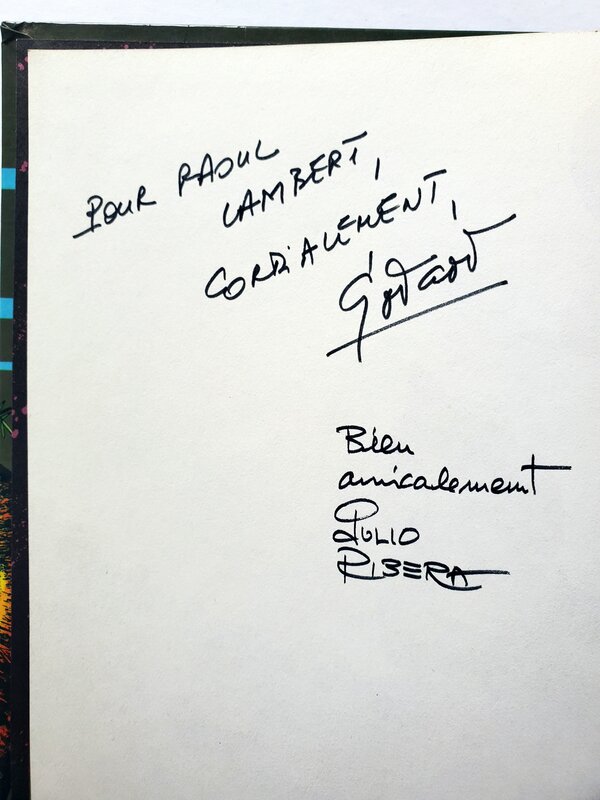 POUR RAOUL
LAMBERT,
CORDIALEMENT,
Godard
Bien
amicalement
JULIO
RIBERA